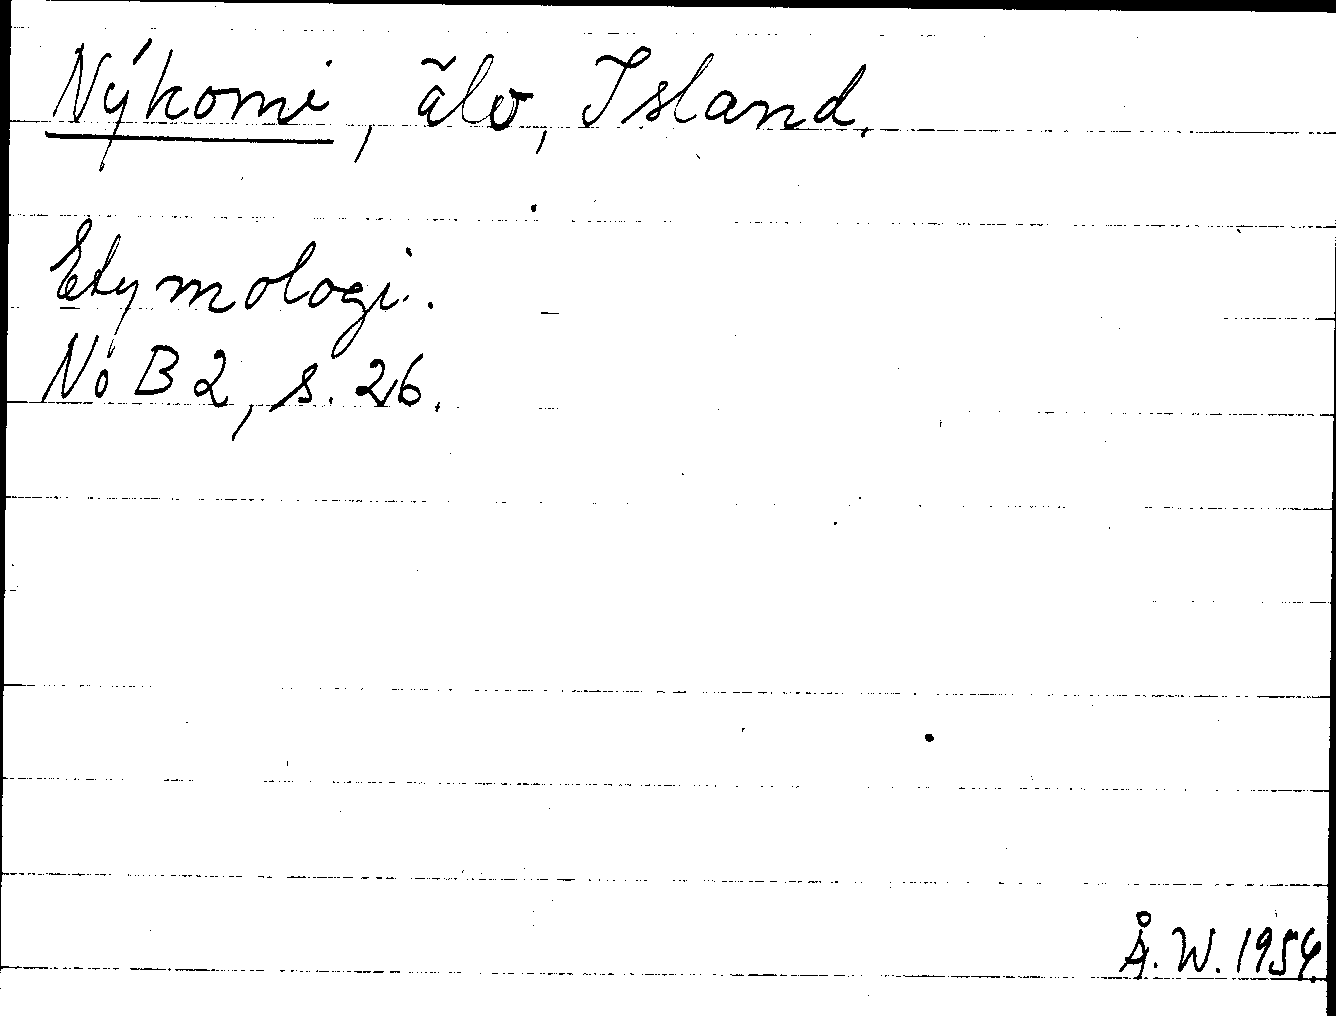 Nýkomi, älv, Island.
Etymologi.
NoB 2, s. 26.
Å. W. 1954.